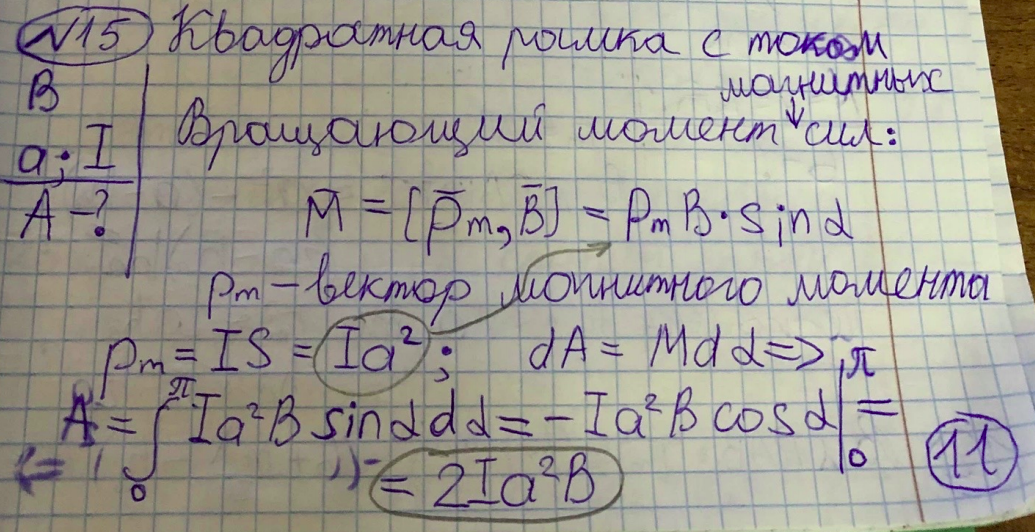 №15 Квадратная рамка с током
B
a; I
A-?
магнитных
Вращающий момент ↓ сил:
M̄ = [p̄m, B̄] = pm B · sin α
pm – вектор магнитного момента
pm = IS = Ia²; dA = M dα =>
A = ∫₀^π Ia²B sin α dα = -Ia²B cos α |₀^π =
= 2Ia²B
11